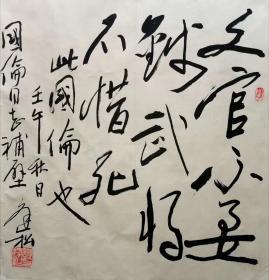 文官不要
錢武将
不惜死
此國倫也
壬午秋日
國倫同志補壁